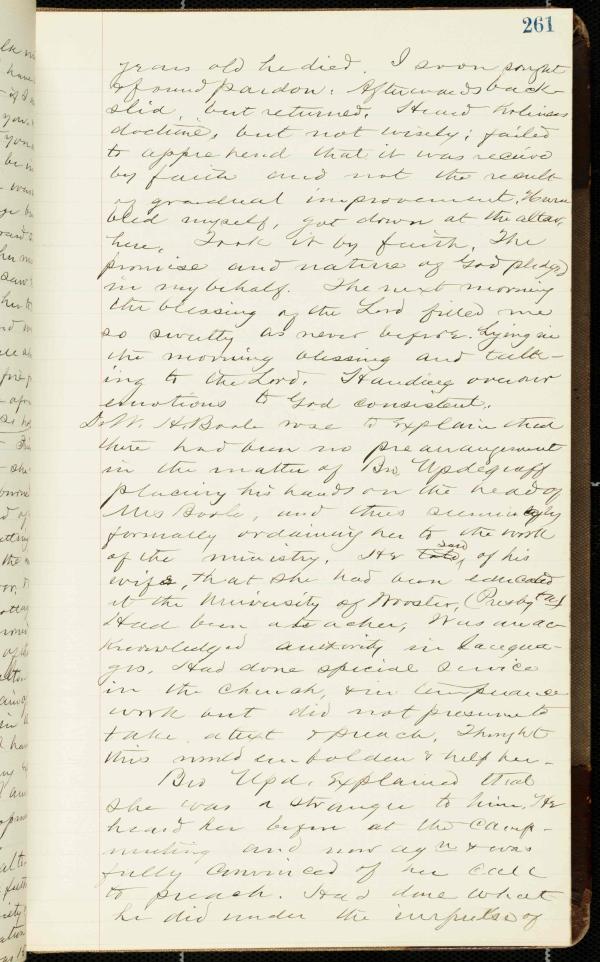 261
years old he died. I soon sought
& found pardon. Afterwards back-
slid, but returned. Heard Holiness
doctrine, but not wisely; failed
to apprehend that it was receive
by faith and not the result
of gradual improvement. Hum
bled myself, got down at the altar
here, Took it by faith. The
promise and nature of God pledged
in my behalf. The next morning
the blessing of the Lord filled me
so sweetly as never before. Lying in
the morning blessing and talk-
ing to the Lord. Handing over our
emotions to God consistent.
Dr W. H. Boole rose to explain that
there had been no prearrangement
in the matter of Bro Updegraff
placing his hands on the head of
Mrs Boole, and thus seemingly
formally ordaining her to the work
of the ministry. He said, of his
wife, that she had been educated
at the University of Wooster, (Presbytn)
Had been a teacher, Was an ac-
knowledged authority in langua-
ges. Had done special service
in the church, & in temperance
work but did not presume to
take a text & preach. Thought
this would embolden & help her.
Bro Upd. Explained that
she was a stranger to him. He
heard her before at the camp-
meeting and now agn & was
fully convinced of her call
to preach. Had done what
he did under the impulse of